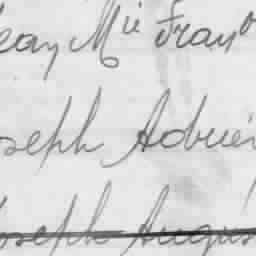 Jean Mie Franço
Joseph Adrien
Joseph August